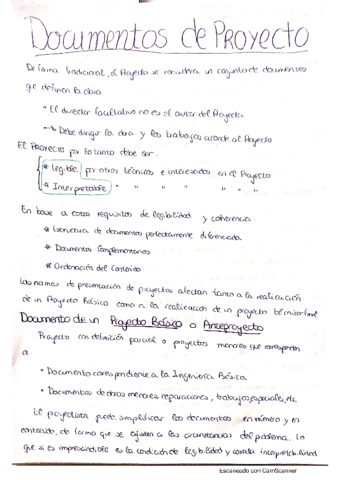 Documentos de Proyecto
De forma tradicional, el Proyecto se considera un conjunto de documentos
que definen la obra
* El director facultativo no es el autor del Proyecto
→ Debe dirigir la obra y los trabajos acorde al Proyecto
El PROYECTO por lo tanto debe ser:
* Legible por otros técnicos e interesados en el Proyecto
* Interpretable " " " " " "
En base a estos requisitos de legibilidad y coherencia:
* Estructura de documentos perfectamente diferenciada
* Documentos Complementarios
* Ordenación del Contenido
Las normas de presentación de proyectos afectan tanto a la realización
de un Proyecto Básico como a la realización de un proyecto técnico
Documento de un Proyecto Básico o Anteproyecto
Proyecto con definición parcial o proyectos menores que corresponden
a
* Documento correspondiente a la Ingeniería Básica.
* Documentos de obras menores, reparaciones, trabajos especiales, etc
El proyectista puede simplificar los documentos en número y en
contenido, de forma que se ajusten a las circunstancias del problema. Lo
que si es imprescindible es la condición de legibilidad y correcta interpretabilidad
Escaneado con CamScanner